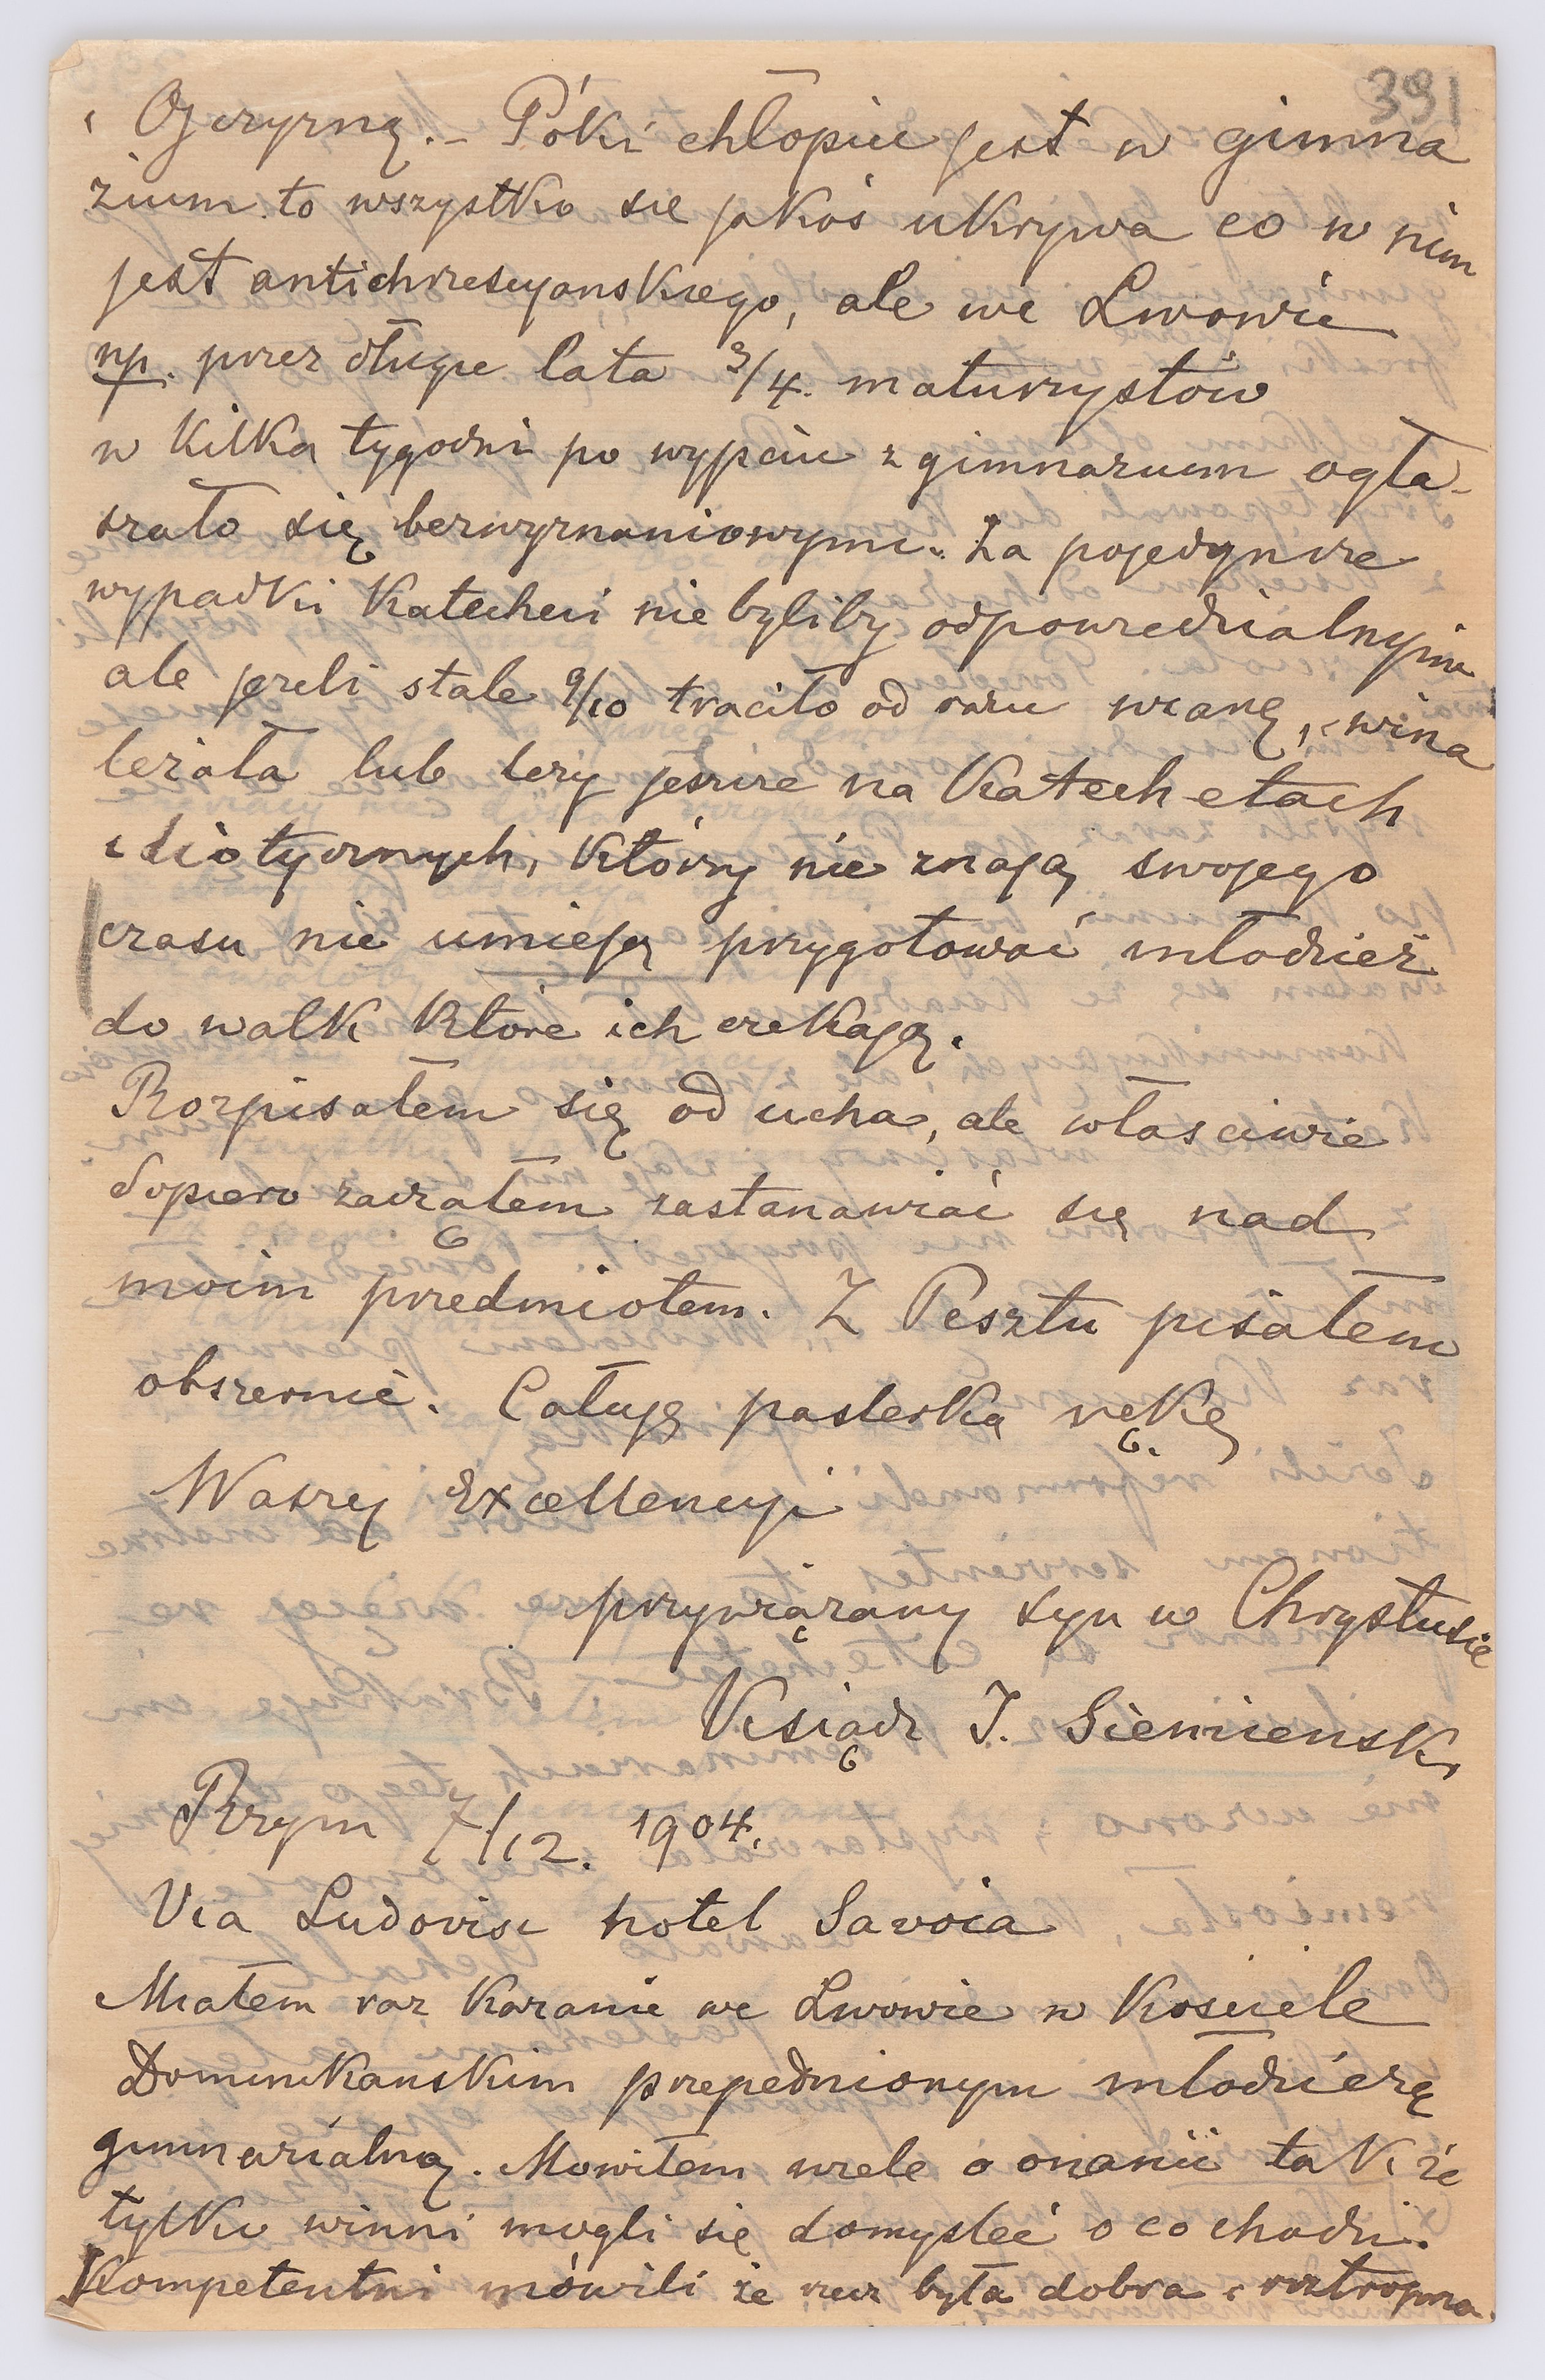 391
i Ojczyznę. – Póki chłopiec jest w gimna
zium to wszystko się jakoś ukrywa co w nim
jest antichrześcyanskiego, ale we Lwowie
np. przez długie lata 3/4. maturzystów
w kilka tygodni po wyjściu z gimnazium ogła-
szało się bezwyznaniowymi. Za pojedyncze
wypadki Katecheci nie byliby odpowiedzialnymi
ale jezeli stale 9/10 traciło od razu wiarę, wina
leżała lub leży jeszcze na Katechetach
idiotycznych, którzy nie znają swojego
czasu nie umieją przygotować młodzież
do walk które ich czekają.
Rozpisałem się od ucha, ale właściwie
dopiero zacząłem zastanawiać się nad
moim przedmiotem. Z Pesztu pisałem
obszernie. Całuję pasterską rękę
Waszej Excellencyi
przywiązany syn w Chrystusie
Ksiądz J. Siemienski
Rzym 7/12. 1904.
Via Ludovisi hotel Savoia
Miałem raz kazanie we Lwowie w Kosciele
Dominikanskim przepełnionym młodzieżą
gimnazialną. Mowiłem wiele o onanii tak że
tylko winni mogli się domysleć o co chodzi.
Kompetentni mówili że rzecz była dobra i roztropna.